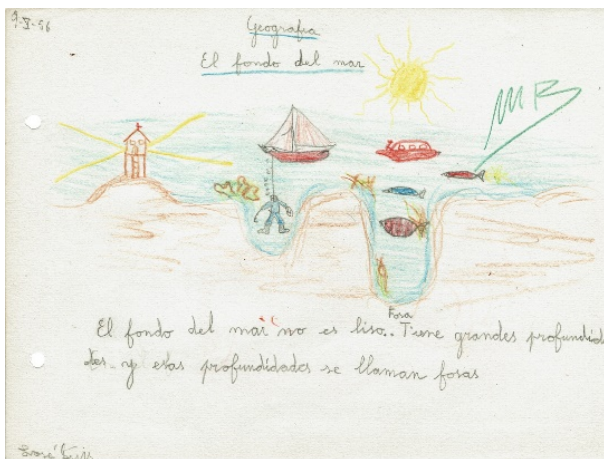 9-X-56
Geografia
El fondo del mar
MB
Fosa
El fondo del mar no es liso.. Tiene grandes profundida
des- y esas profundidades se llaman fosas
José